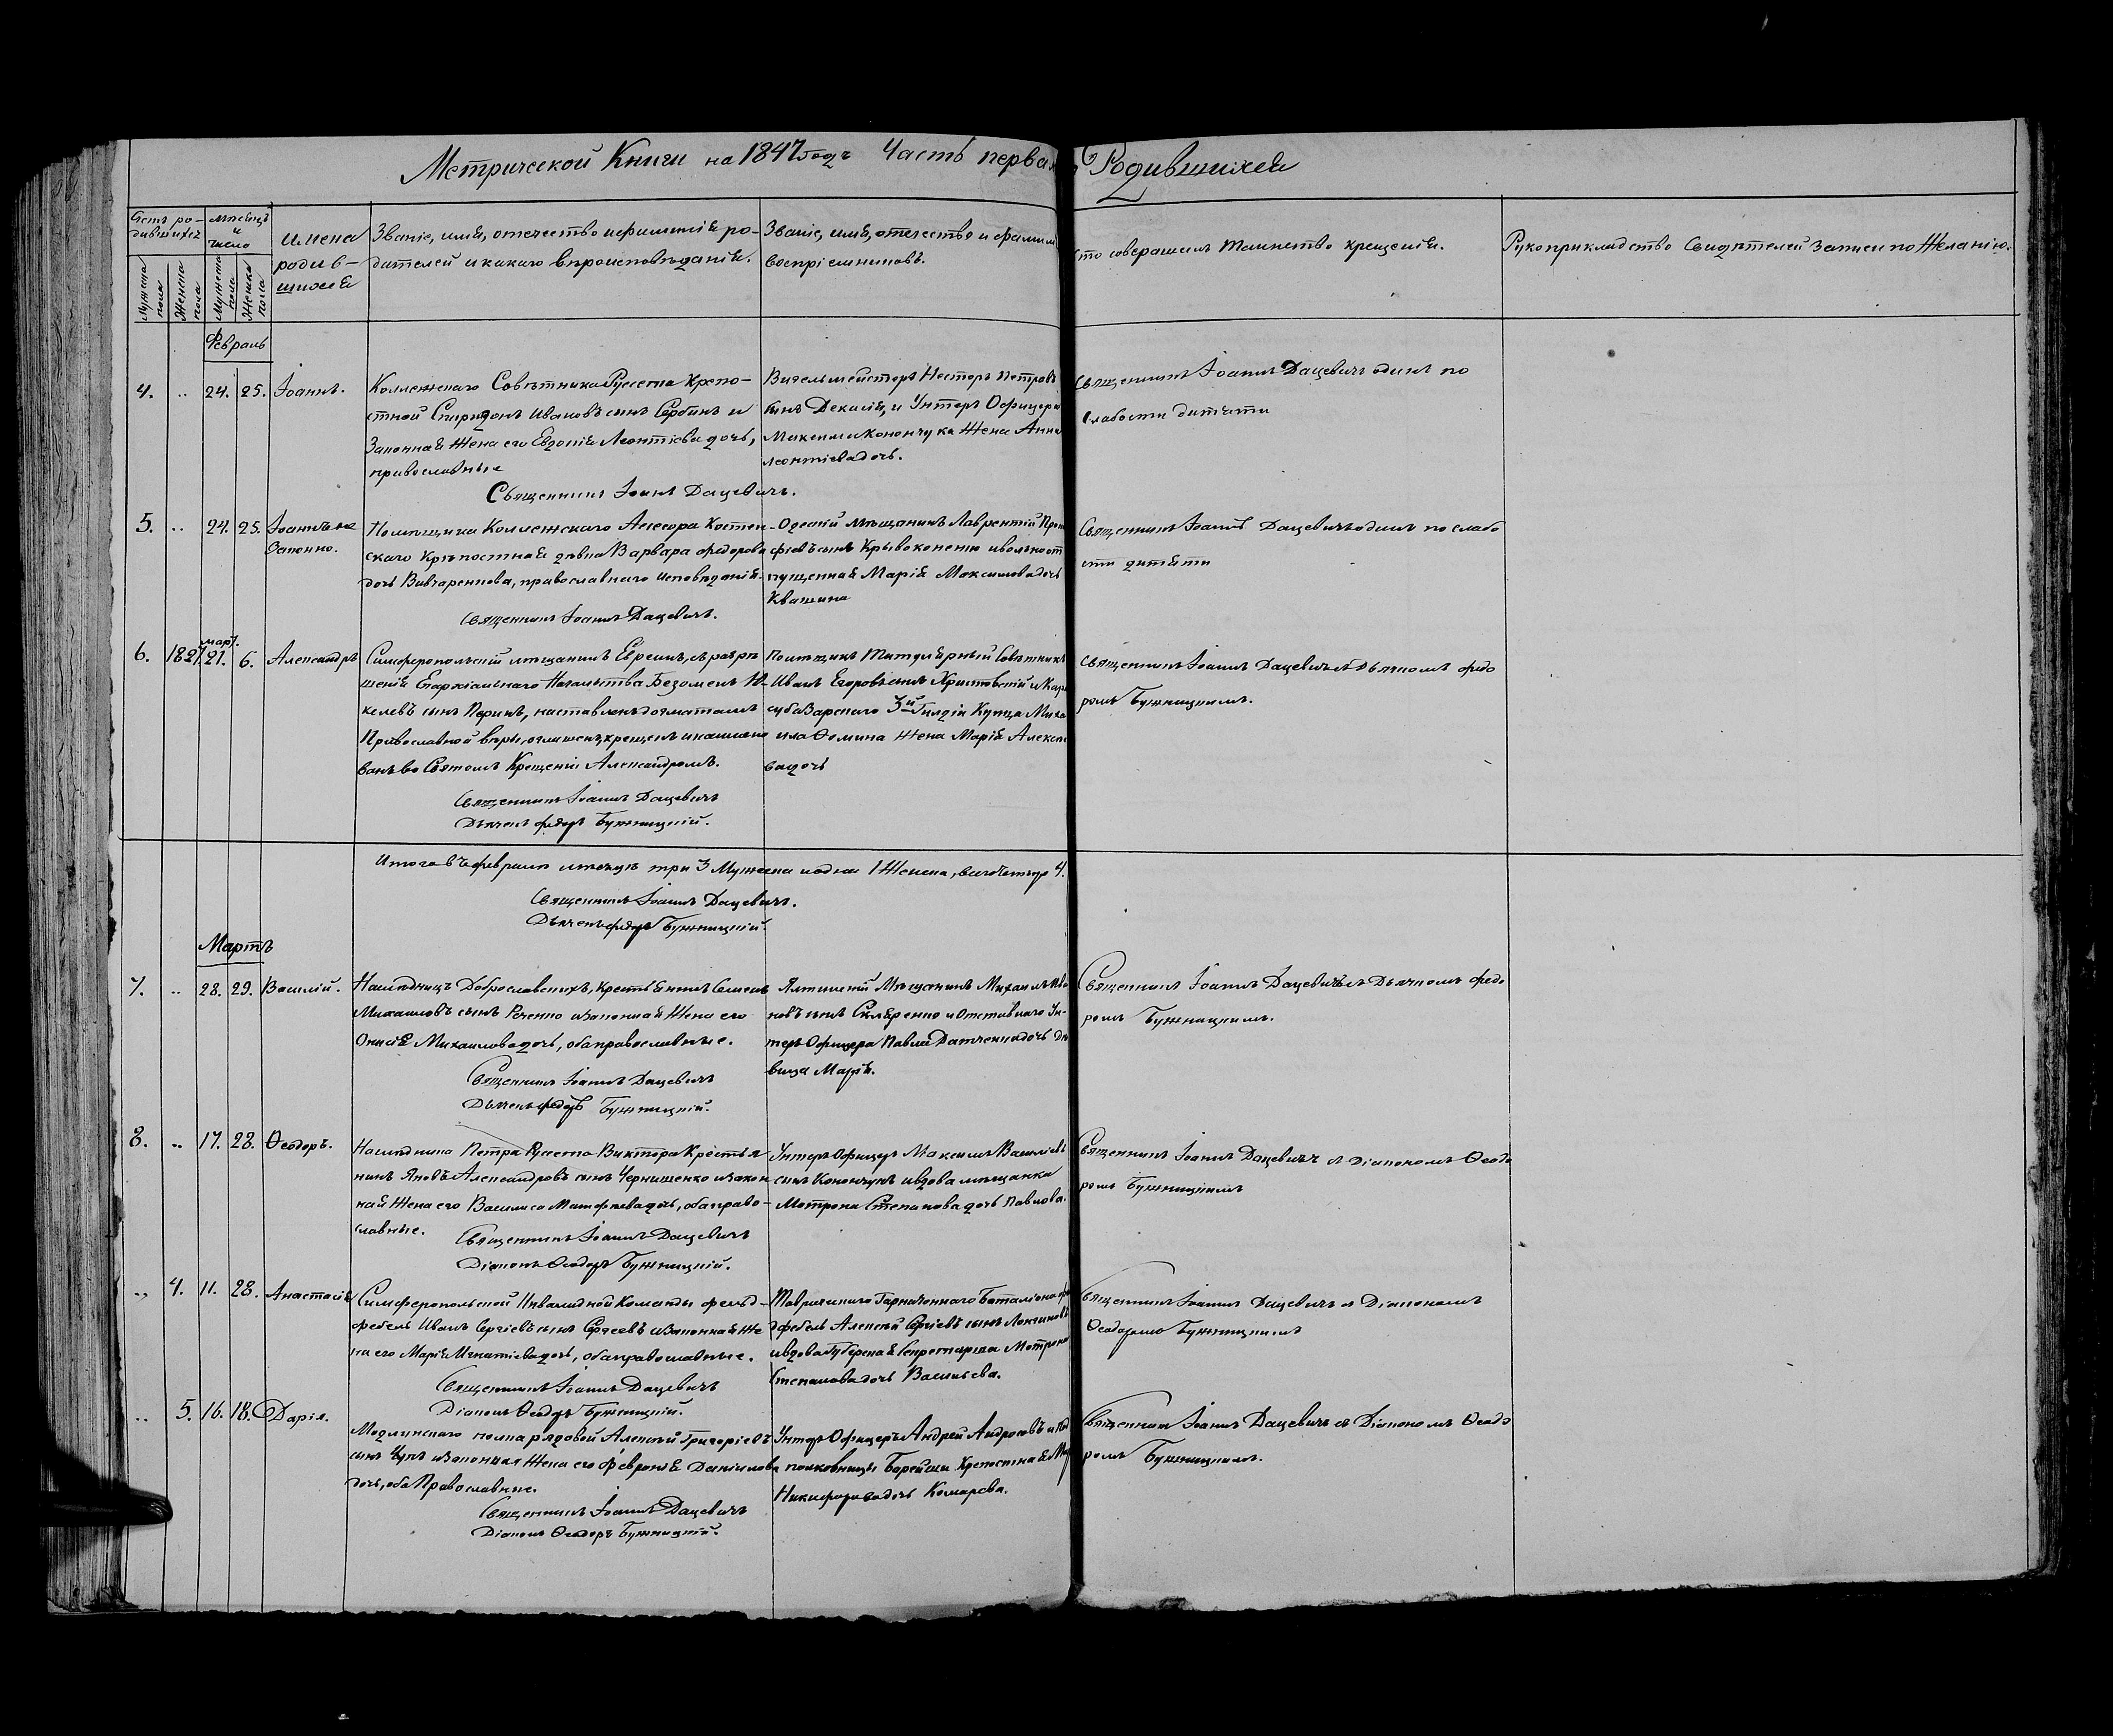 Метрической Книги на 1847 годъ Часть первая
Родившихся
Счетъ ро-
дившихся
Мѣсяцъ
и
число
Мужеска
пола
Женска
пола
Мужеска
пола
Женска
пола
Имена
родив-
шихся
Званіе, имя, отечество и фамилія ро-
дителей и какого вѣроисповѣданія.
Званіе, имя, отечество и фамилія
воспріемниковъ.
Кто совершалъ таинство крещенія.
Рукоприкладство Свидѣтелей записи по желанію.
Февраль
4. „ 24. 25. Іоаннъ.
Коллежскаго Совѣтника Руссета Крепо-
стной Спиридонъ Ивановъ сынъ Сербинъ и
Законная Жена его Евдокія Леонтіева дочь,
православные
Священникъ Іоаннъ Дацевичъ.
Нестеръ Петровъ
сынъ Декасій, и Унтеръ Офицера
Максима Конончука Жена Анна
Леонтіева дочь.
Священникъ Іоаннъ Дацевичъ одинъ по
слабости дитяти
5. „ 24. 25. Іоаннъ не
Законно.
Помѣщика Коллежскаго Асесора
скаго Крѣпостная дѣвка Варвара Федорова
дочь православнаго исповѣданія.
Священникъ Іоаннъ Дацевичъ.
Одескій мѣщанинъ Лаврентій
сынъ и вольноот
пущенная Марія Максимова дочь
Квашина
Священникъ Іоаннъ Дацевичъ одинъ по слабо
сти дитяти
6. 1827. март. 21. 6. Александръ
Симферопольскій мѣщанинъ Евреинъ, съ разрѣ
шенія Епархіальнаго Начальства
сынъ наставленъ догматамъ
Православной вѣры, оглашенъ, крещенъ и наимено
ванъ во Святомъ Крещеніи Александромъ.
Священникъ Іоаннъ Дацевичъ
Дьячекъ Федоръ Бужницкій.
Помѣщикъ Титулярный Совѣтникъ
Иванъ Егоровъ сынъ Христовскій и Кара
субазарскаго 3й Гилдіи Купца Миха
ила Фомина Жена Марія
ва дочь
Священникъ Іоаннъ Дацевичъ съ Дьячкомъ Федо
ромъ Бужницкимъ.
Итого въ февралѣ мѣсяцѣ три 3 Мужеска и одна 1 Женска, всего четыре 4.
Священникъ Іоаннъ Дацевичъ.
Дьячекъ Федоръ Бужницкій.
Мартъ
7. „ 28. 29. Василій.
Наслѣдницъ Доброславскихъ, крестьянинъ Семенъ
Михаиловъ сынъ и законная Жена его
Михаилова дочь, оба православные.
Священникъ Іоаннъ Дацевичъ
Дьячекъ Федоръ Бужницкій.
Ялтинскій Мѣщанинъ Михаилъ Ива
новъ сынъ и Отставнаго Ун-
теръ Офицера Павла дочь дѣ
вица Марія.
Священникъ Іоаннъ Дацевичъ съ Дьячкомъ Федо
ромъ Бужницкимъ.
8. „ 17. 28. Ѳеодоръ.
Наслѣдника Петра Руссета Виктора Крестья
нинъ Яковъ Александровъ сынъ Чернишенко и закон
ная Жена его Василиса Матфѣева дочь, оба право-
славные.
Священникъ Іоаннъ Дацевичъ
Діаконъ Ѳеодоръ Бужницкій.
Унтеръ Офицеръ Максимъ Василіевъ
сынъ Конончукъ и вдова мѣщанка
Мотрона Степанова дочь Павлова.
Священникъ Іоаннъ Дацевичъ съ Діакономъ Ѳеодо
ромъ Бужницкимъ
„ 4. 11. 28. Анастасія
Симферопольской Инвалидной Команды фельд-
фебель Иванъ Сергіевъ сынъ Сергеевъ и законная Же
на его Марія Игнатіева дочь, оба православные.
Священникъ Іоаннъ Дацевичъ
Діаконъ Ѳеодоръ Бужницкій.
Таврическаго Гарнизоннаго Баталіона
дфебель Алексѣй Сергіевъ сынъ
и вдова Губернская Секретарша Мотрона
Степанова дочь Васильева.
Священникъ Іоаннъ Дацевичъ съ Діакономъ
Ѳеодоромъ Бужницкимъ
„ 5. 16. 18. Дарія.
Модлинскаго полка рядовой Алексѣй Григоріевъ
сынъ и законная Жена его Февронія Даніилова
дочь, оба Православные.
Священникъ Іоаннъ Дацевичъ
Діаконъ Ѳеодоръ Бужницкій.
Унтеръ Офицеръ Андрей Андросовъ и Под
полковницы Крепостная
Никифорова дочь Комарева.
Священникъ Іоаннъ Дацевичъ съ Діакономъ Ѳеодо
ромъ Бужницкимъ.